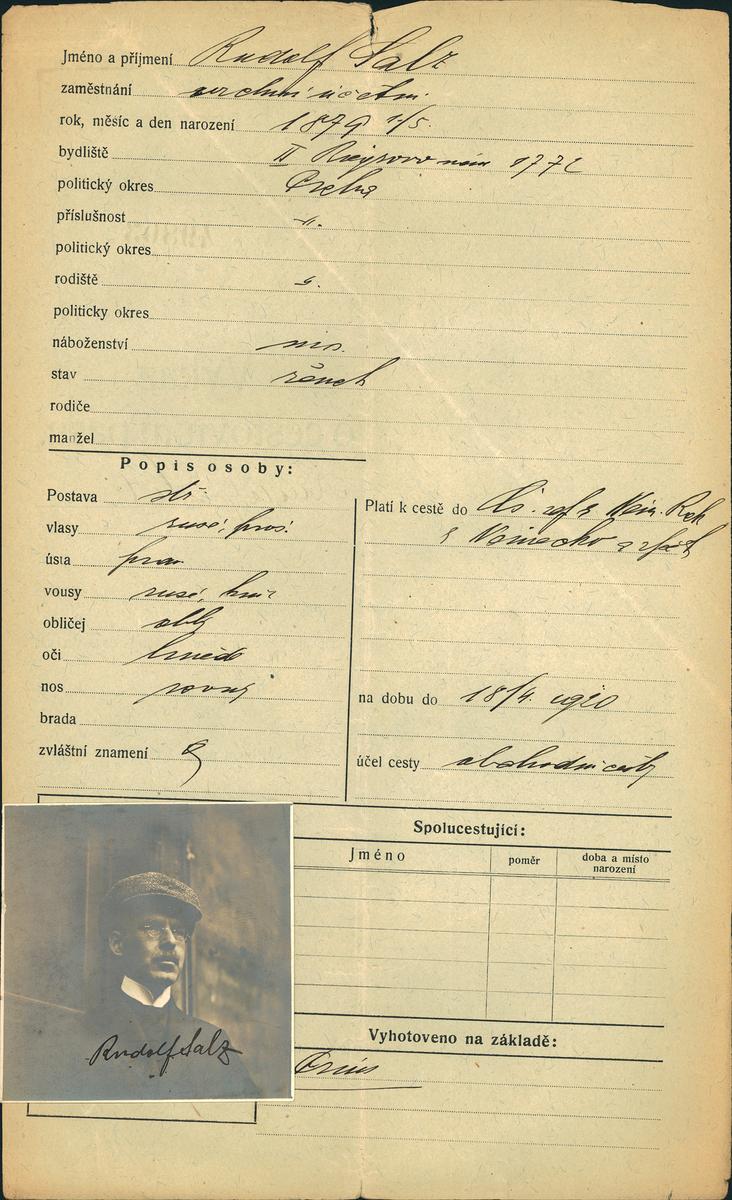 Jméno a příjmení Rudolf Salz
zaměstnání vrchní účetní
rok, měsíc a den narození 1879 1/5.
bydliště II Riegrovo nám 1772
politický okres Praha
příslušnost "
politický okres
rodiště
politicky okres
náboženství
stav ženat
rodiče
manžel
Popis osoby:
Postava stř
vlasy rusé, pros.
ústa prav
vousy rusé, knír
obličej oblý
oči hnědé
nos rovný
brada
zvláštní znamení
Platí k cestě do Čs. rep Něm. Rak
Německo a zpět
na dobu do 18/4. 1920
účel cesty obchodní cesty
Spolucestující:
Jméno
poměr
doba a místo
narození
Vyhotoveno na základě:
Rudolf Salz